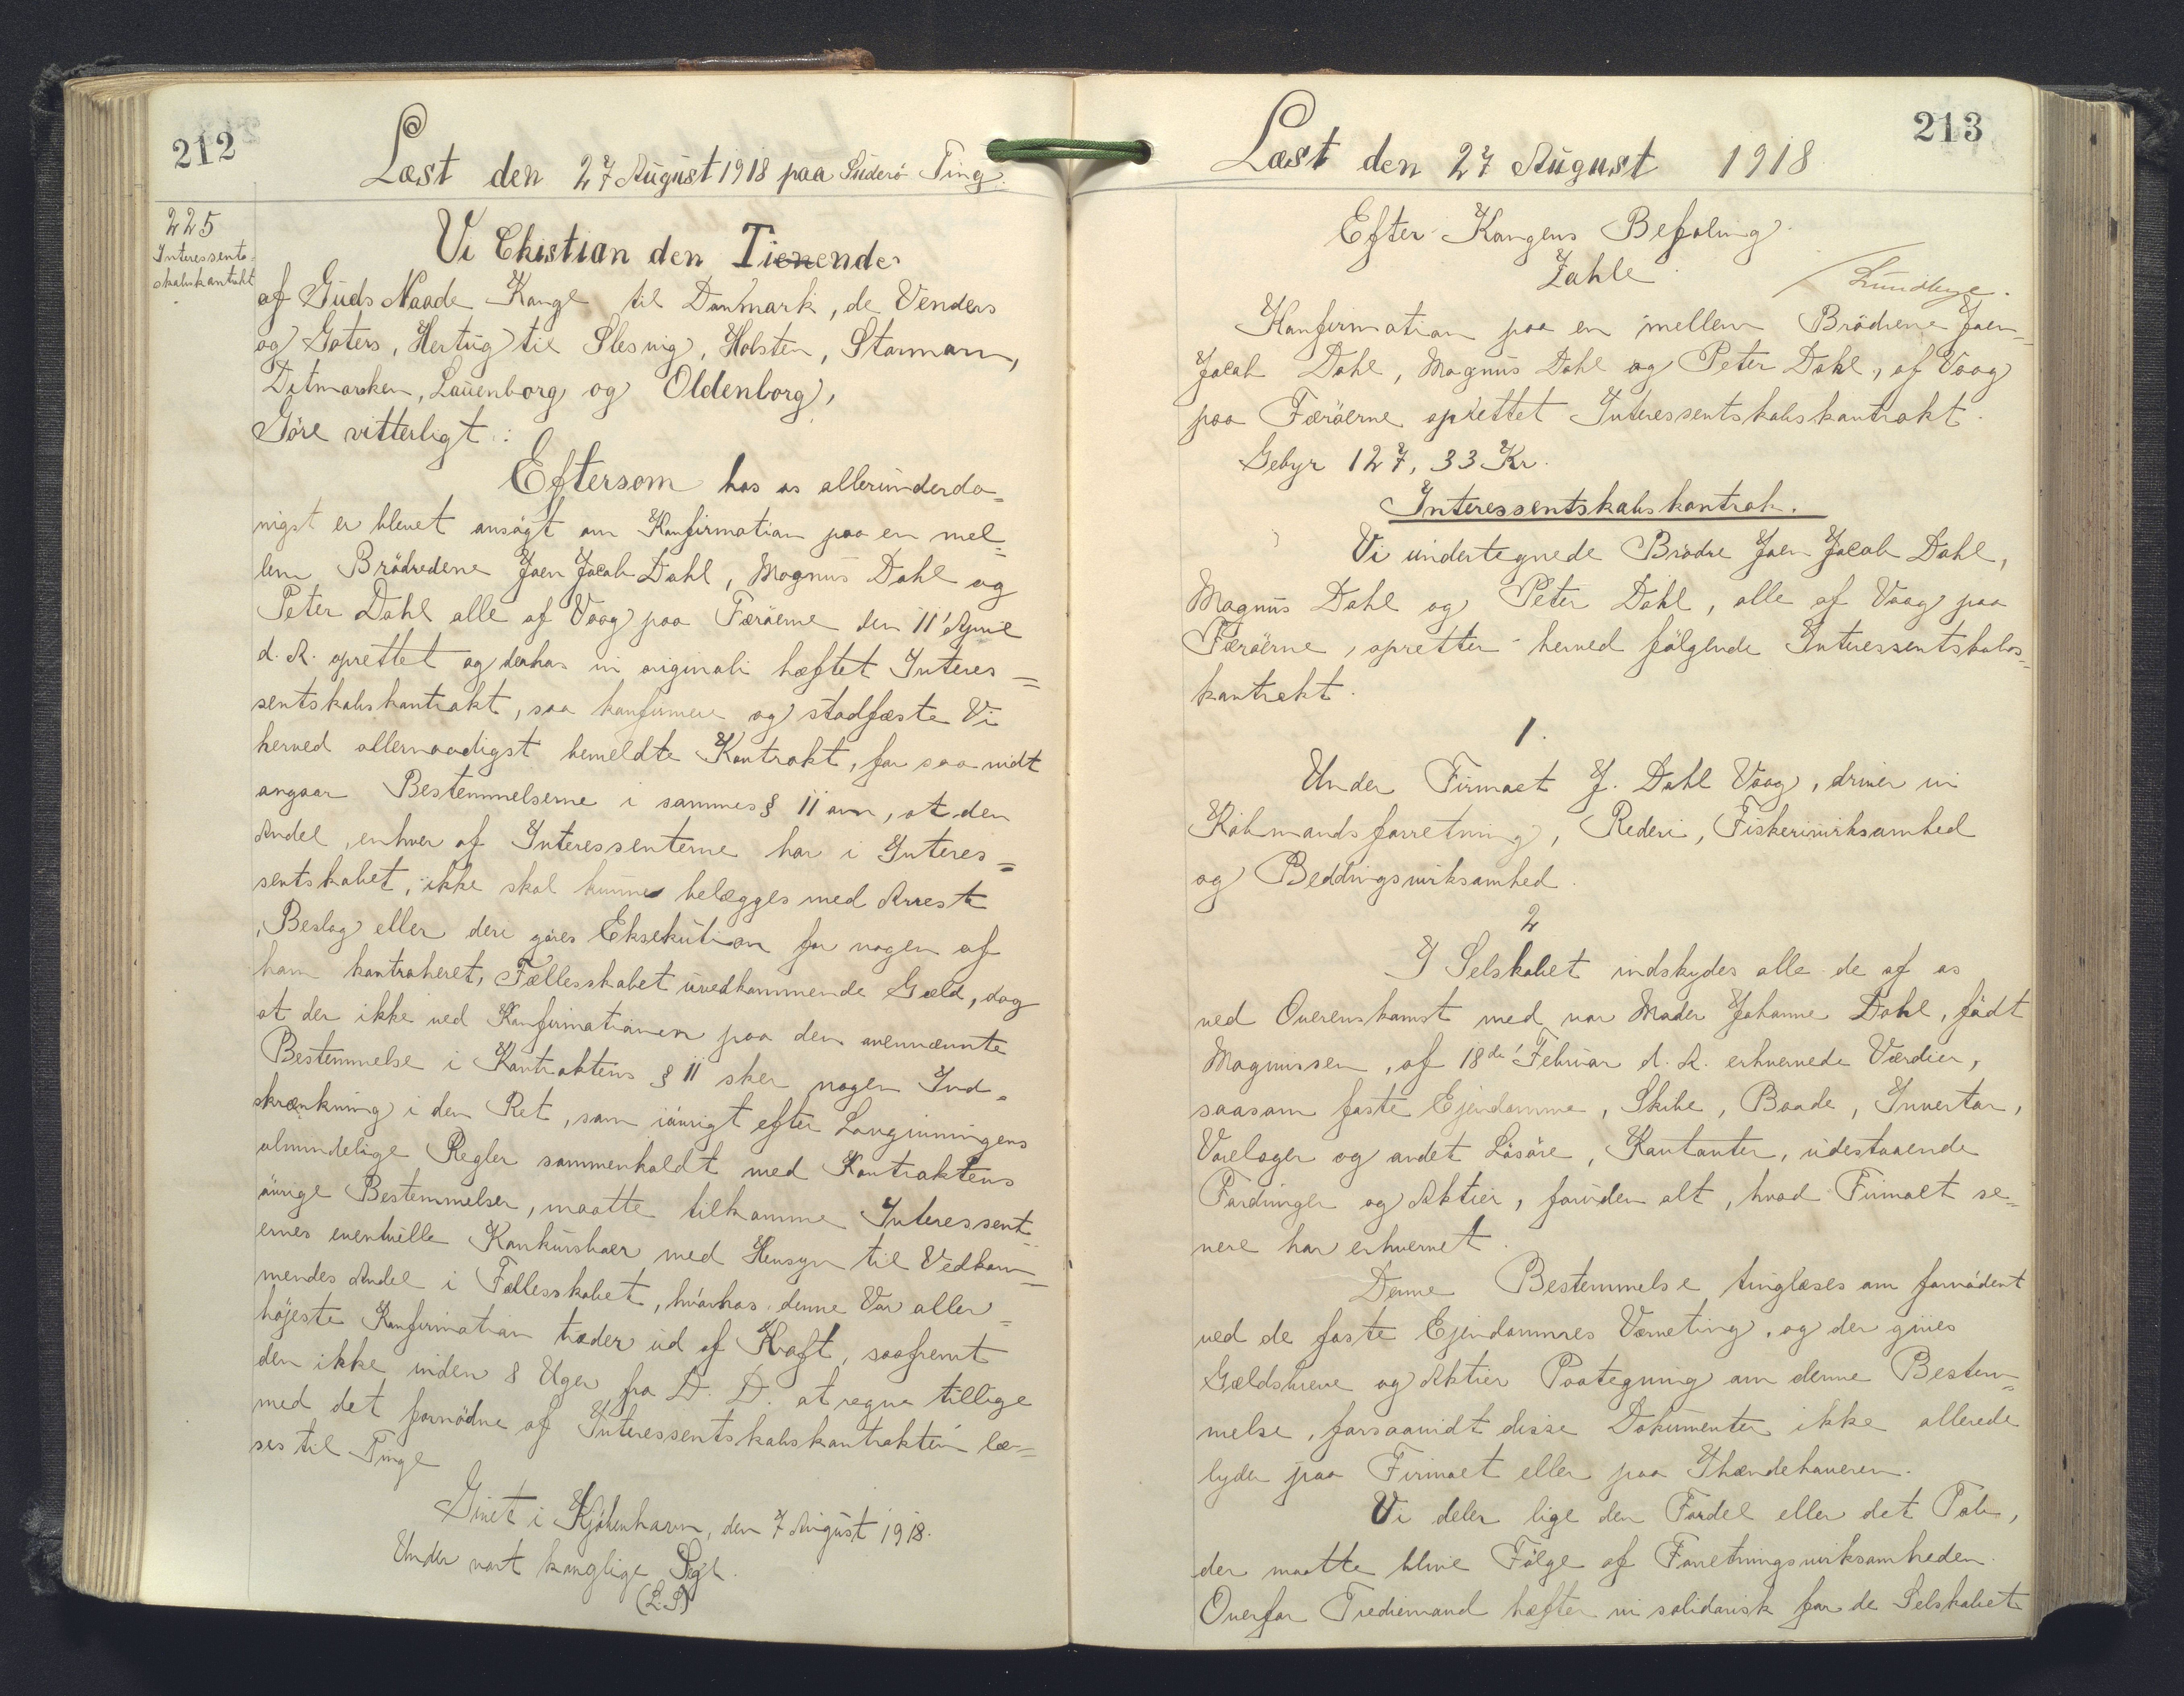 212
Læst den 27 August 1918 paa Suderö Ting.
225
Interessent-
skabskontrakt
Vi Christian den Tienende
af Guds Naade Konge til Danmark, de Venders
og Goters, Hertug til Slesvig, Holsten, Storman,
Ditmarsken, Lauenborg og Oldenborg,
Göre vitterligt:
Eftersom hos os allerunderda-
nigst er blevet ansögt om Konfirmation paa en mel-
lem Brödredene Joen Jacob Dahl, Magnus Dahl og
Peter Dahl alle af Vaag paa Færöerne den 11' April
d. A. oprettet og derhos in originali hæftet Interes-
sentskabskontrakt, saa konfirmere og stadfæste Vi
herved allernaadigst bemeldte Kontrakt, for saa vidt
angaar Bestemmelserne i sammes § 11 om, at den
Andel, enhver af Interessenterne har i Interes-
sentskabet, ikke skal kunne belægges med Arrest
, Beslag eller deri göres Eksekution for nogen af
ham kontraheret, Fællesskabet uvedkommende Gæld, dog
at der ikke ved Konfirmationen paa den ovennævnte
Bestemmelse i Kontraktens § 11 sker nogen Ind-
skrænkning i den Ret, som iövrigt efter Lovgivningens
almindelige Regler sammenholdt med Kontraktens
övrige Bestemmelser, maatte tilkomme Interessent-
ernes eventuelle Konkursboer med Hensyn til Vedkom-
mendes Andel i Fællesskabet, hvorhos denne Vor aller-
höjeste Konfirmation træder ud af Kraft, saafremt
den ikke inden 8 Uger fra D. D. at regne tillige
med det fornödne af Interessentskabskontrakten læ-
ses til Tinge
Givet i Kjöbenhavn, den 7 August 1918.
Under vort kongelige Segl.
(L.S)
213
Læst den 27 August 1918
Efter Kongens Befaling
Zahle
/ Lundbye.
Konfirmation paa en mellem Brödrene Joen-
Jacob Dahl, Magnus Dahl og Peter Dahl, af Vaag
paa Færöerne oprettet Interessentskabskontrakt.
Gebyr 127, 33 Kr.
Interessentskabskontrak.
Vi undertegnede Brödre Joen Jacob Dahl,
Magnus Dahl og Peter Dahl, alle af Vaag paa
Færöerne, opretter herved fölgende Interessentskabs-
kontrakt.
1.
Under Firmaet J. Dahl Vaag, driver vi
Köbmandsforretning, Rederi, Fiskerivirksamhed
og Beddingsvirksamhed.
2
I Selskabet indskydes alle de af os
ved Overenskomst med vor Moder Johanne Dahl, födt
Magnussen, af 18de Februar d. A. erhvervede Værdier,
saasom faste Ejendomme, Skibe, Baade, Inventar,
Varelager og andet Lösöre, Kontanter, udestaaende
Fordringer og Aktier, foruden alt, hvad Firmaet se-
nere har erhvervet.
Denne Bestemmelse tinglæses om fornödent
ved de faste Ejendommes Værneting, og der gives
Gældsbreve og Aktier Paategning om denne Bestem-
melse, forsaavidt disse Dokumenter ikke allerede
lyder paa Firmaet eller paa Ihændehaveren.
Vi deler lige den Fordel eller det Tab,
der maatte blive Fölge af Forretningsvirksamheden.
Overfor Trediemand hæfter vi solidarisk for de Selskabet